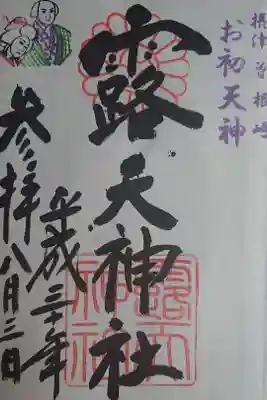 摂津 曽根崎
お初天神
露天神社
平成三十年
八月三日
参拝
露天
神社